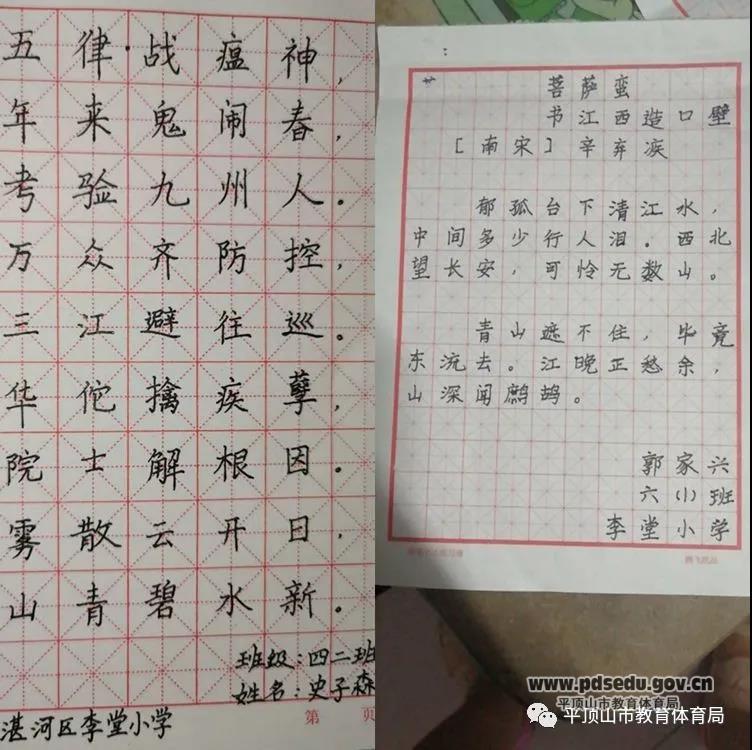 五律·战瘟神，
年来鬼闹春，
考验九州人。
万众齐防控，
三江避往巡。
华佗擒疾孽，
院士解根因。
雾散云开日，
山青碧水新。
班级：四二班
姓名：史子森
湛河区李堂小学
第 页
菩萨蛮
书江西造口壁
[南宋] 辛弃疾
郁孤台下清江水，
中间多少行人泪。西北
望长安，可怜无数山。
青山遮不住，毕竟
东流去。江晚正愁余，
山深闻鹧鸪。
郭家兴
六(1)班
李堂小学
www.pdsedu.gov.cn
平顶山市教育体育局
平顶山市教育体育局